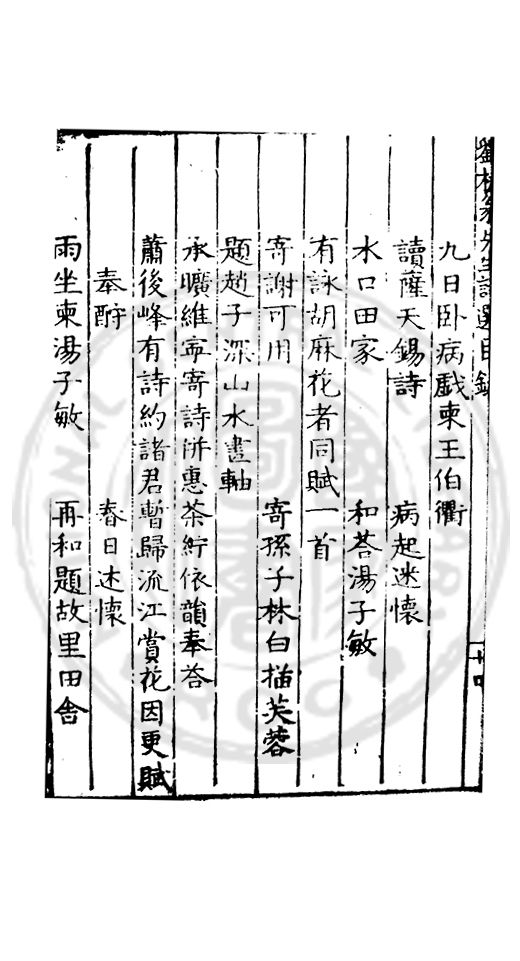 九日卧病戲柬王伯衢
讀薩天錫詩　病起述懷
水口田家　和荅湯子敏
有詠胡麻花者同賦一首
寄謝可用　寄孫子林白描芙蓉
題趙子深山水畫軸
承曠維寧寄詩併惠茶紵依韻奉荅
蕭後峰有詩約諸君暫歸流江賞花因更賦
奉酧　春日述懷
雨坐柬湯子敏　再和題故里田舍